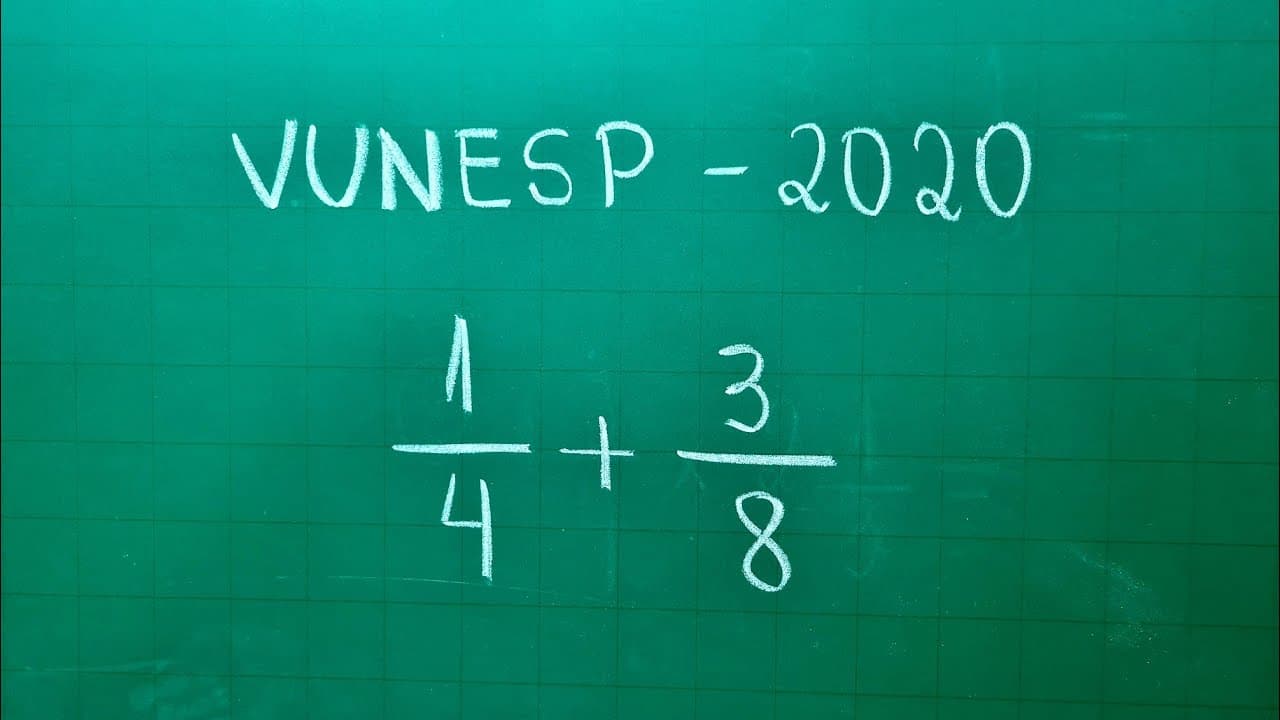 VUNESP - 2020
1/4 + 3/8